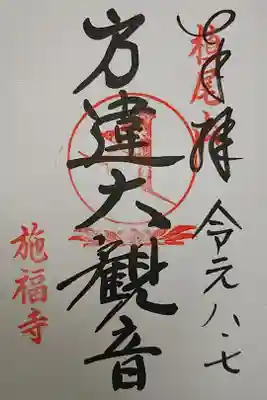 奉拝
槙尾山
令元八・七
方違大観音
施福寺